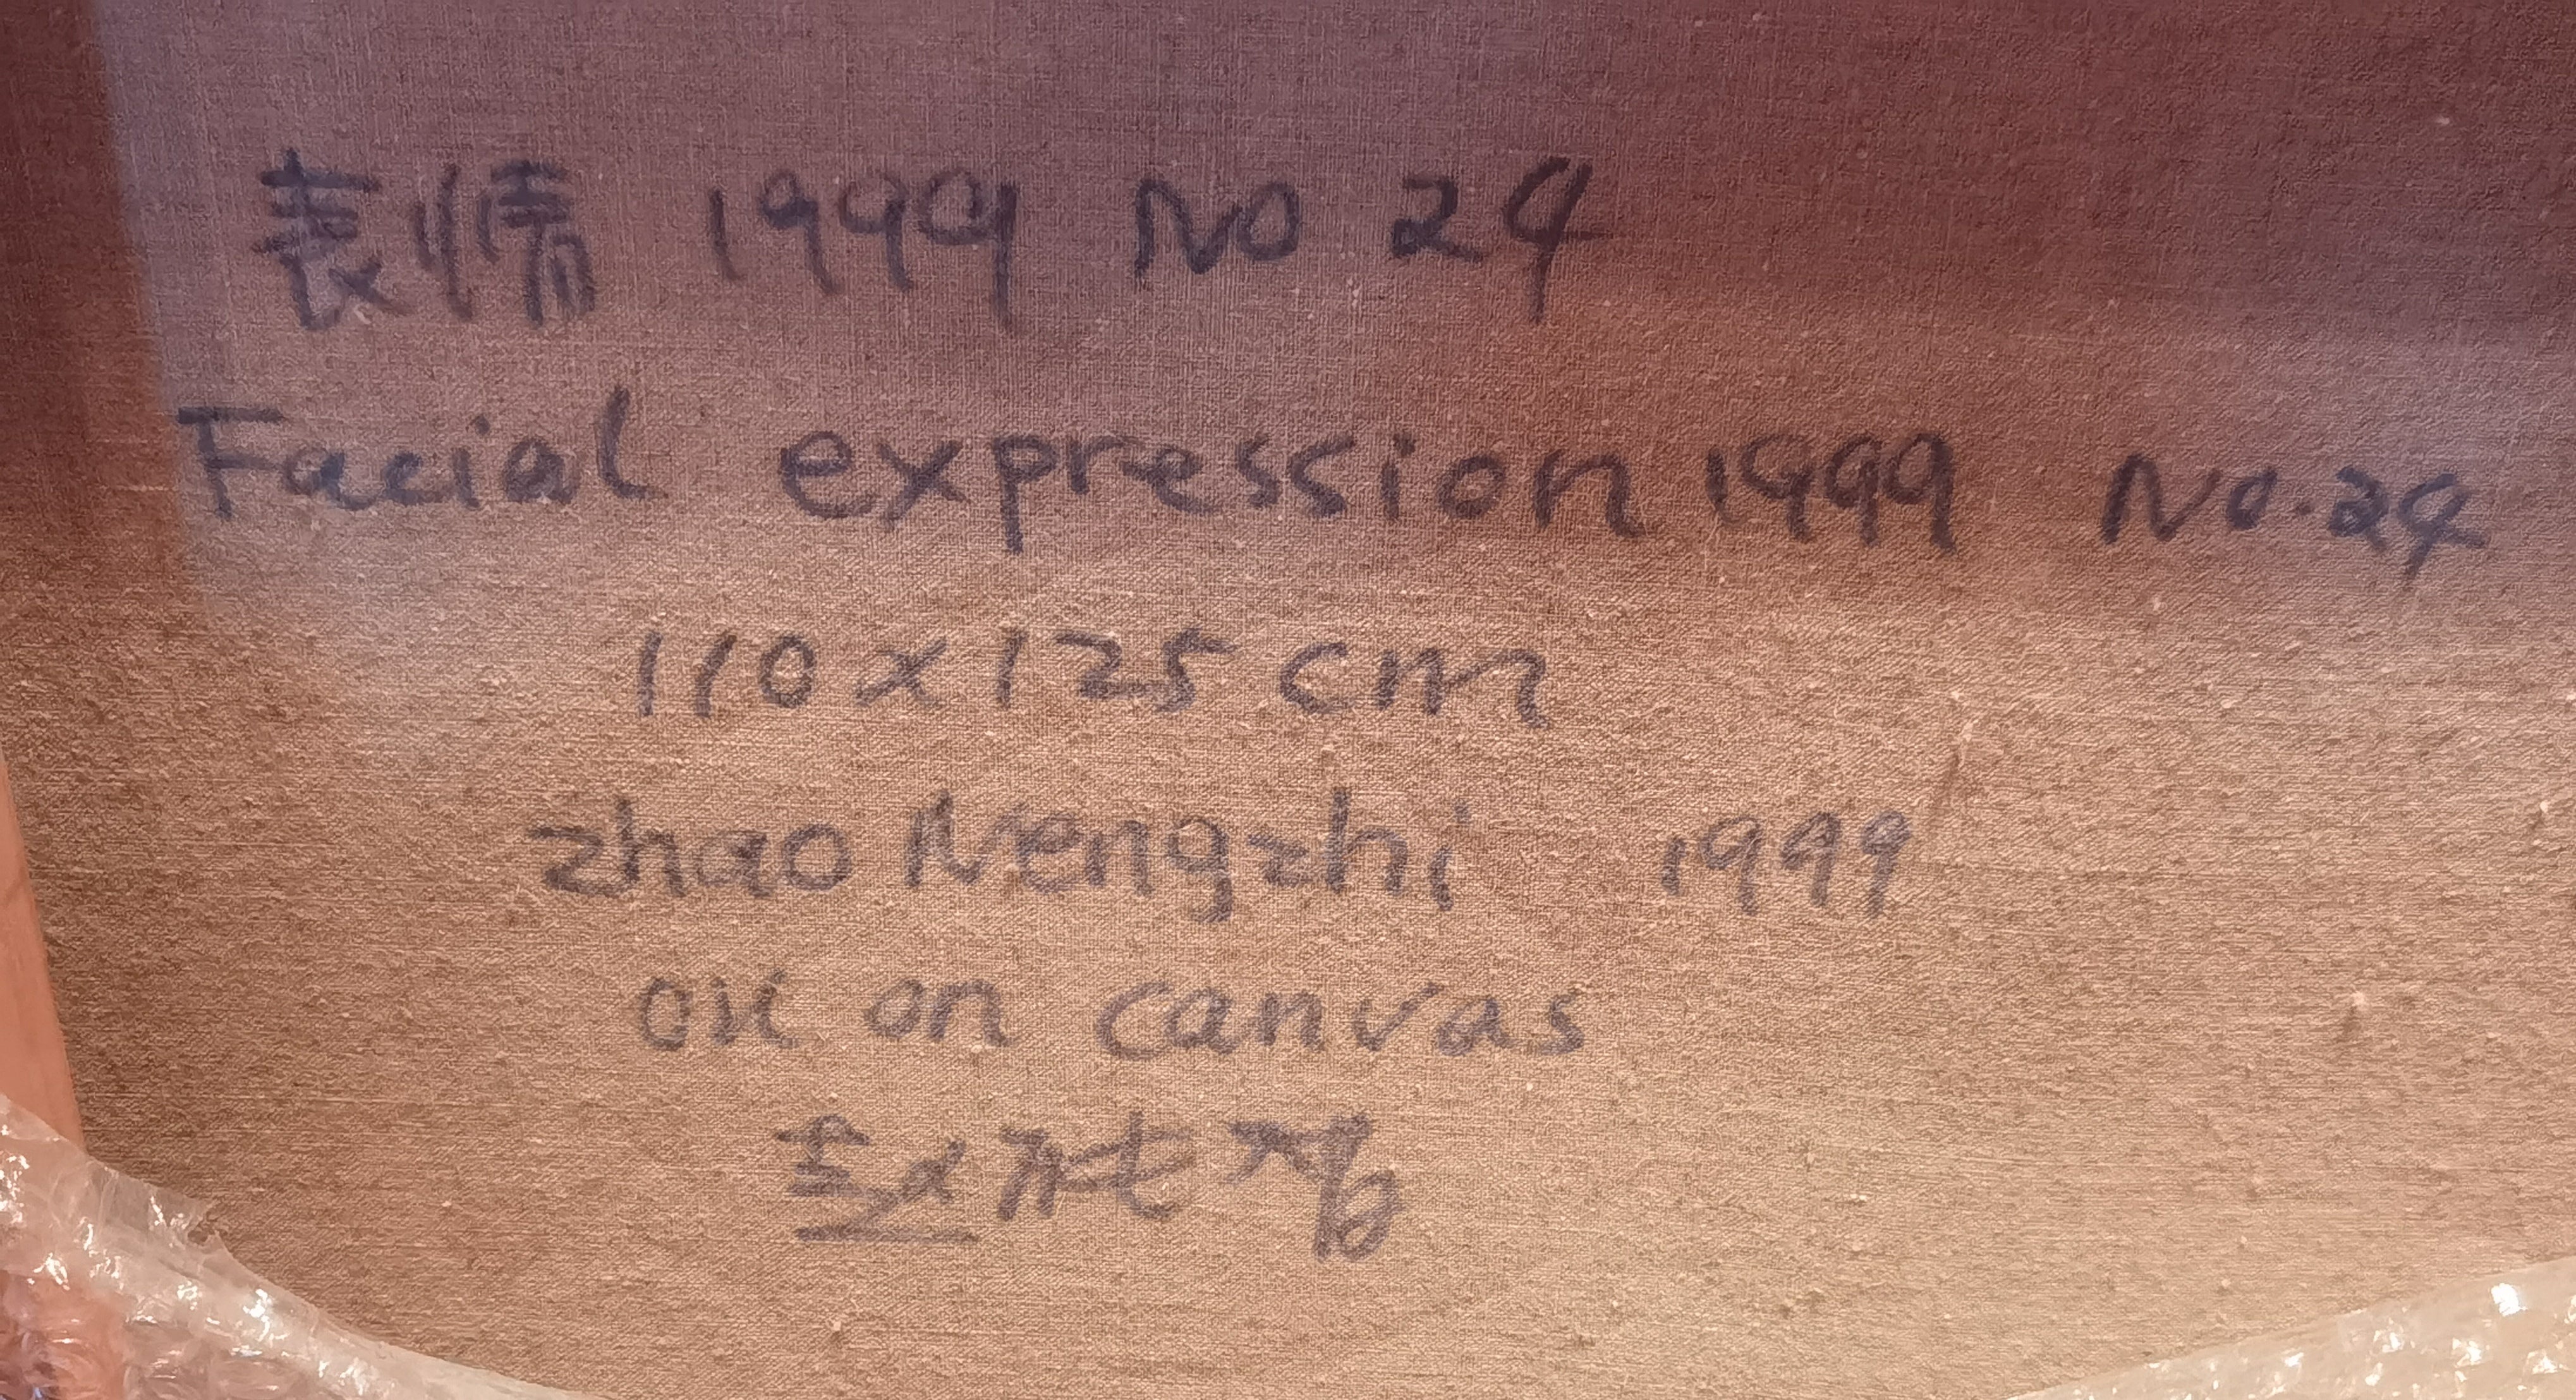 表情 1999 NO 24
Facial expression 1999 No.24
110x125cm
zhao Nengzhi 1999
oil on canvas
赵能智